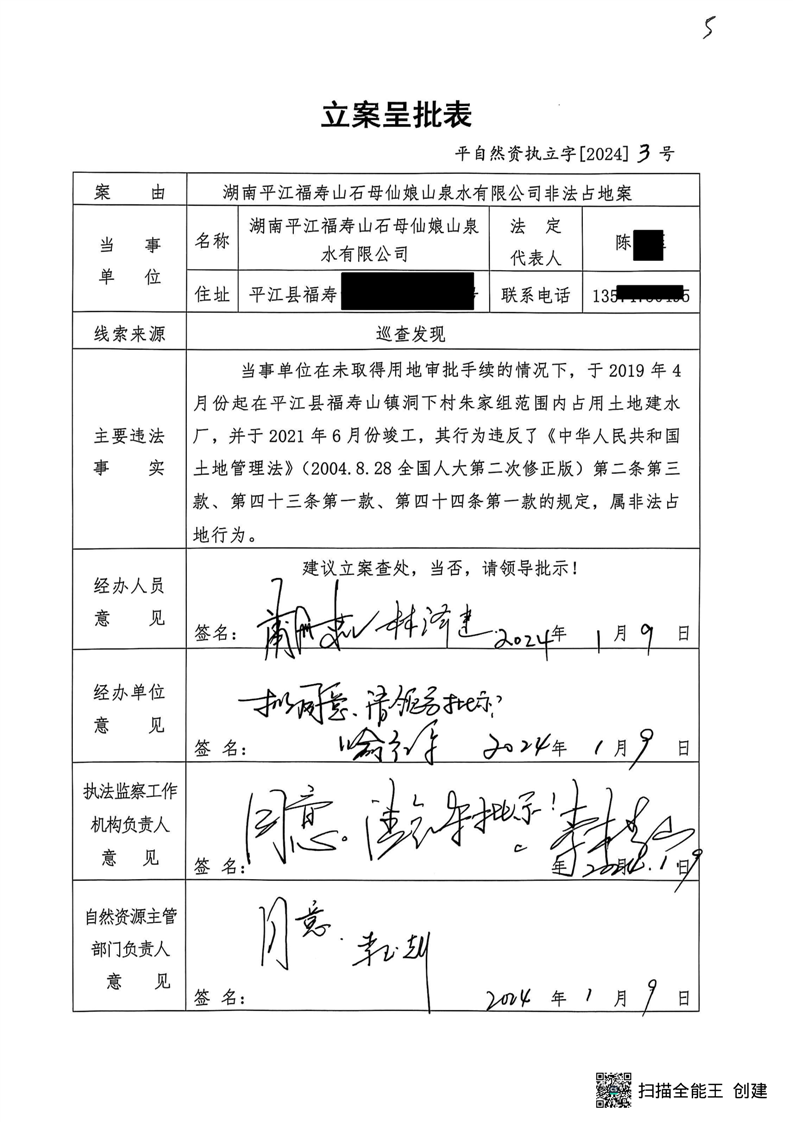 5
立案呈批表
平自然资执立字[2024] 3 号
案 由 湖南平江福寿山石母仙娘山泉水有限公司非法占地案
当 事 单 位
名称 湖南平江福寿山石母仙娘山泉水有限公司
法 定 代表人 陈
住址 平江县福寿 号
联系电话 135
线索来源 巡查发现
主要违法事 实
当事单位在未取得用地审批手续的情况下，于 2019 年 4
月份起在平江县福寿山镇洞下村朱家组范围内占用土地建水
厂，并于 2021 年 6 月份竣工，其行为违反了《中华人民共和国
土地管理法》（2004.8.28 全国人大第二次修正版）第二条第三
款、第四十三条第一款、第四十四条第一款的规定，属非法占
地行为。
经办人员意 见
建议立案查处，当否，请领导批示！
签名： 林泽建 2024年 1 月 9 日
经办单位意 见
拟同意、请领导批示？
签 名： 2024年 1 月 9 日
执法监察工作机构负责人意 见
同意。请 批示！
签 名： 年 2024.1.9 日
自然资源主管部门负责人意 见
同意.
签 名： 2024 年 1 月 9 日
扫描全能王 创建